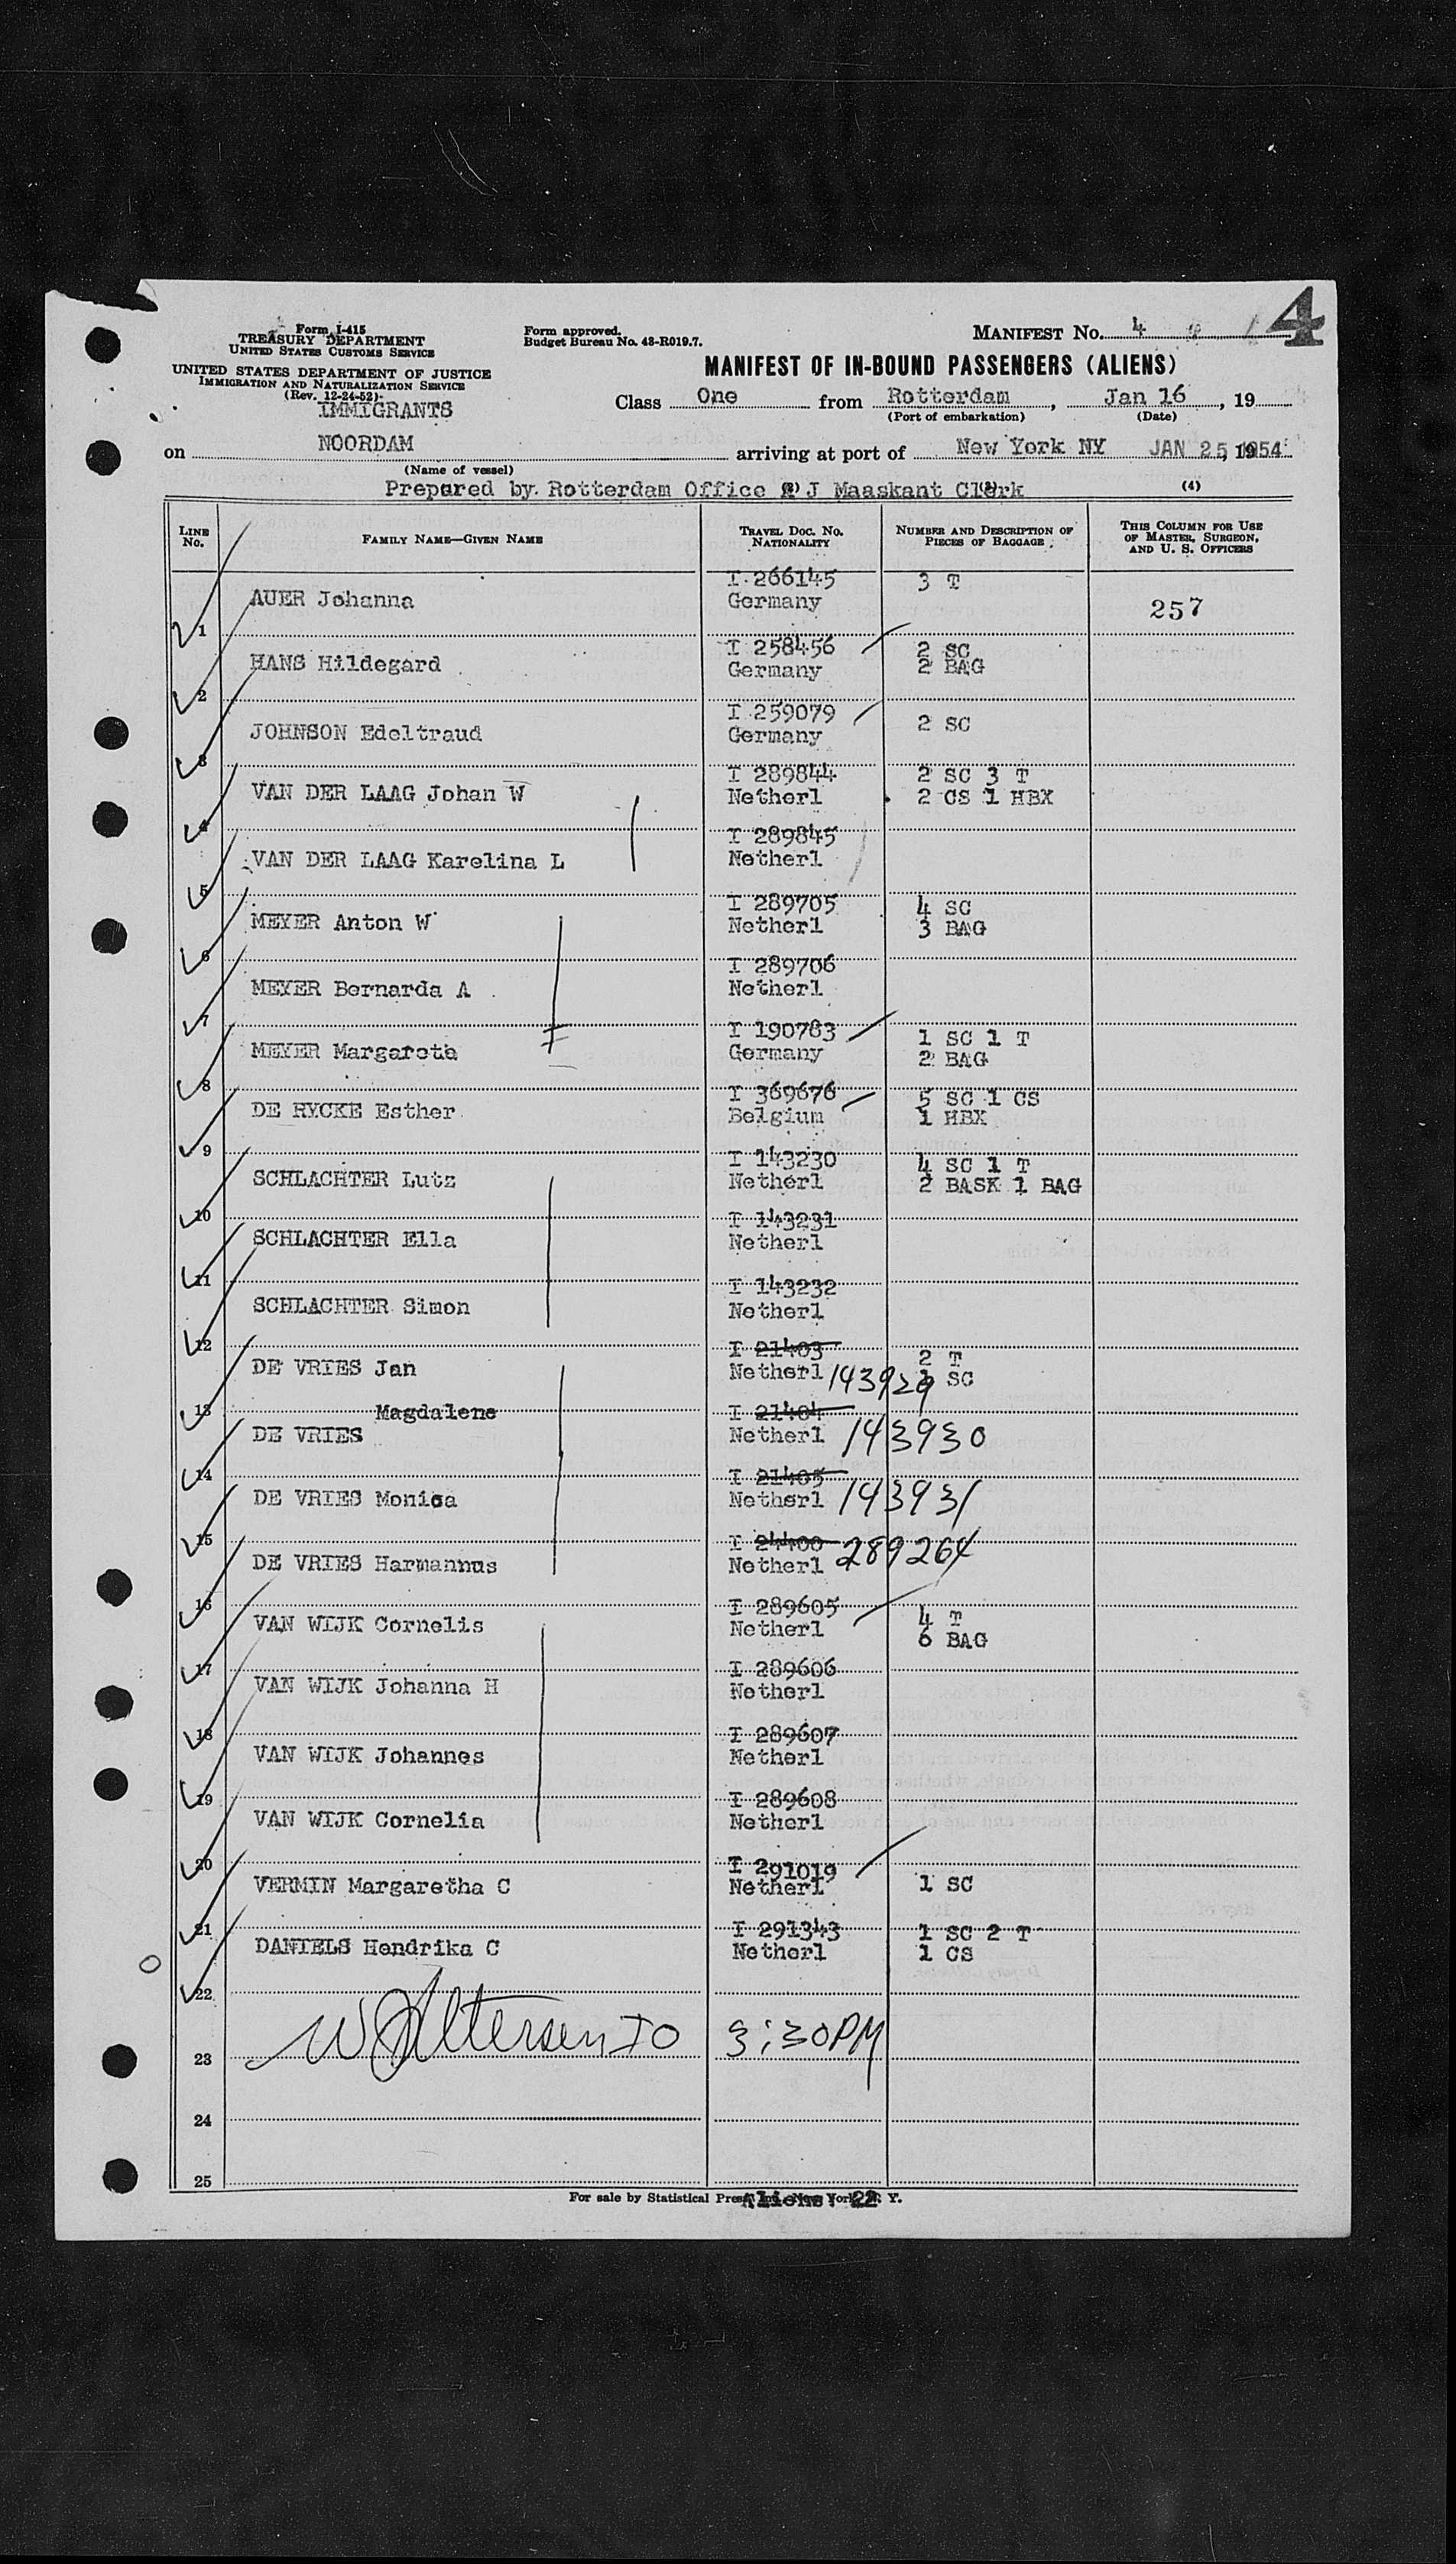 4
Form I-415
TREASURY DEPARTMENT
UNITED STATES CUSTOMS SERVICE
UNITED STATES DEPARTMENT OF JUSTICE
IMMIGRATION AND NATURALIZATION SERVICE
(Rev. 12-24-52)
IMMIGRANTS
Form approved.
Budget Bureau No. 43-R019.7.
MANIFEST No. 4
MANIFEST OF IN-BOUND PASSENGERS (ALIENS)
Class One from Rotterdam, Jan 16, 19
(Port of embarkation) (Date)
on NOORDAM arriving at port of New York NY JAN 25, 1954
(Name of vessel)
Prepared by Rotterdam Office J Maaskant Clerk (4)
LINE No. FAMILY NAME—GIVEN NAME TRAVEL DOC. NO. NATIONALITY NUMBER AND DESCRIPTION OF PIECES OF BAGGAGE THIS COLUMN FOR USE OF MASTER, SURGEON, AND U. S. OFFICERS
I 266145 3 T
1 AUER Johanna Germany 257
I 258456 2 SC
2 HANS Hildegard Germany 2 BAG
I 259079 2 SC
3 JOHNSON Edeltraud Germany
I 289844 2 SC 3 T
4 VAN DER LAAG Johan W Netherl 2 CS 1 HBX
I 289845
5 VAN DER LAAG Karelina L Netherl
I 289705 4 SC
6 MEYER Anton W Netherl 3 BAG
I 289706
7 MEYER Bernarda A Netherl
I 190783 1 SC 1 T
8 MEYER Margarete Germany 2 BAG
I 369676 5 SC 1 CS
9 DE RYCKE Esther Belgium 1 HBX
I 143230 4 SC 1 T
10 SCHLACHTER Lutz Netherl 2 BASK 1 BAG
I 143231
11 SCHLACHTER Ella Netherl
I 143232
12 SCHLACHTER Simon Netherl
I 21403 2 T
13 DE VRIES Jan Netherl 143929 SC
Magdalene I 21404
14 DE VRIES Netherl 143930
I 21405
15 DE VRIES Monica Netherl 143931
I 24400
16 DE VRIES Harmannus Netherl 289264
I 289605 4 T
17 VAN WIJK Cornelis Netherl 6 BAG
I 289606
18 VAN WIJK Johanna H Netherl
I 289607
19 VAN WIJK Johannes Netherl
I 289608
20 VAN WIJK Cornelia Netherl
I 291019
21 VERMIN Margaretha C Netherl 1 SC
I 291343 1 SC 2 T
22 DANIELS Hendrika C Netherl 1 CS
23 3:30PM
24
25
For sale by Statistical Press, New York, N. Y.
Aliens: 22